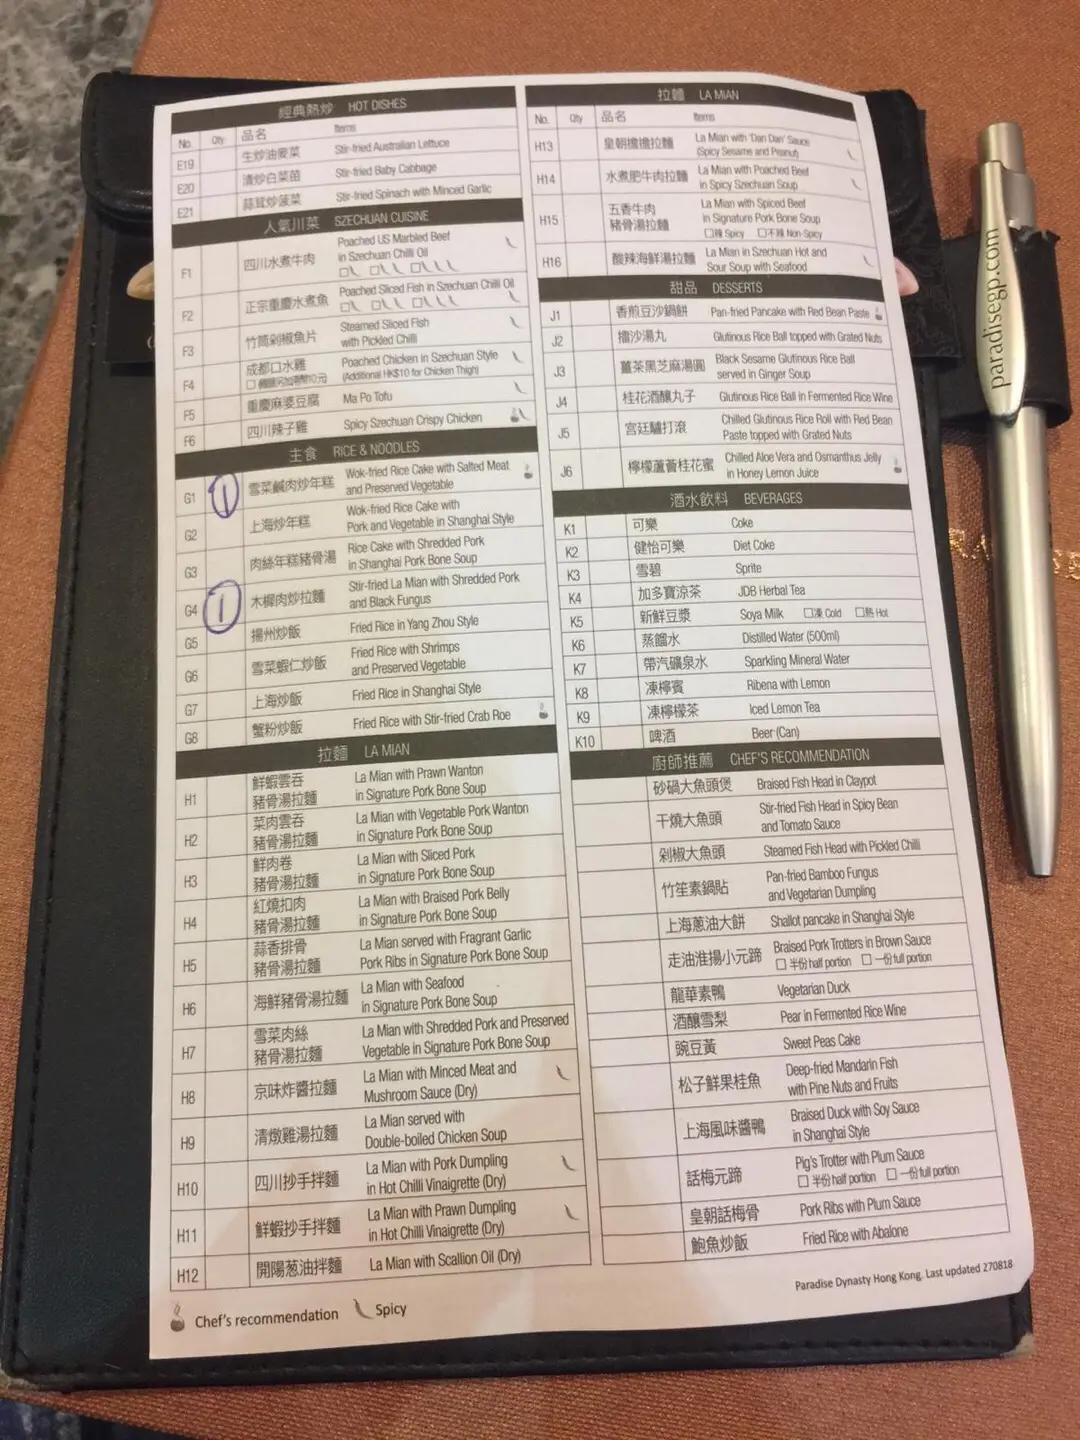 經典熱炒 HOT DISHES
No. Qty 品名 Items
E19 生炒油麥菜 Stir-fried Australian Lettuce
E20 清炒白菜苗 Stir-fried Baby Cabbage
E21 蒜茸炒菠菜 Stir-fried Spinach with Minced Garlic
人氣川菜 SZECHUAN CUISINE
F1 四川水煮牛肉 Poached US Marbled Beef
in Szechuan Chilli Oil
F2 正宗重慶水煮魚 Poached Sliced Fish in Szechuan Chilli Oil
F3 竹筒剁椒魚片 Steamed Sliced Fish
with Pickled Chilli
F4 成都口水雞 Poached Chicken in Szechuan Style
(Additional HK$10 for Chicken Thigh)
F5 重慶麻婆豆腐 Ma Po Tofu
F6 四川辣子雞 Spicy Szechuan Crispy Chicken
主食 RICE & NOODLES
G1 1 雪菜鹹肉炒年糕 Wok-fried Rice Cake with Salted Meat
and Preserved Vegetable
G2 上海炒年糕 Wok-fried Rice Cake with
Pork and Vegetable in Shanghai Style
G3 肉絲年糕豬骨湯 Rice Cake with Shredded Pork
in Shanghai Pork Bone Soup
G4 1 木樨肉炒拉麵 Stir-fried La Mian with Shredded Pork
and Black Fungus
G5 揚州炒飯 Fried Rice in Yang Zhou Style
G6 雪菜蝦仁炒飯 Fried Rice with Shrimps
and Preserved Vegetable
G7 上海炒飯 Fried Rice in Shanghai Style
G8 蟹粉炒飯 Fried Rice with Stir-fried Crab Roe
拉麵 LA MIAN
H1 鮮蝦雲吞 La Mian with Prawn Wanton
豬骨湯拉麵 in Signature Pork Bone Soup
H2 菜肉雲吞 La Mian with Vegetable Pork Wanton
豬骨湯拉麵 in Signature Pork Bone Soup
H3 鮮肉卷 La Mian with Sliced Pork
豬骨湯拉麵 in Signature Pork Bone Soup
H4 紅燒扣肉 La Mian with Braised Pork Belly
豬骨湯拉麵 in Signature Pork Bone Soup
H5 蒜香排骨 La Mian served with Fragrant Garlic
豬骨湯拉麵 Pork Ribs in Signature Pork Bone Soup
H6 海鮮豬骨湯拉麵 La Mian with Seafood
in Signature Pork Bone Soup
H7 雪菜肉絲 La Mian with Shredded Pork and Preserved
豬骨湯拉麵 Vegetable in Signature Pork Bone Soup
H8 京味炸醬拉麵 La Mian with Minced Meat and
Mushroom Sauce (Dry)
H9 清燉雞湯拉麵 La Mian served with
Double-boiled Chicken Soup
H10 四川抄手拌麵 La Mian with Pork Dumpling
in Hot Chilli Vinaigrette (Dry)
H11 鮮蝦抄手拌麵 La Mian with Prawn Dumpling
in Hot Chilli Vinaigrette (Dry)
H12 開陽葱油拌麵 La Mian with Scallion Oil (Dry)
Chef's recommendation Spicy
拉麵 LA MIAN
No. Qty 品名 Items
H13 皇朝擔擔拉麵 La Mian with 'Dan Dan' Sauce
(Spicy Sesame and Peanut)
H14 水煮肥牛肉拉麵 La Mian with Poached Beef
in Spicy Szechuan Soup
H15 五香牛肉 La Mian with Spiced Beef
豬骨湯拉麵 in Signature Pork Bone Soup
□辣 Spicy □不辣 Non-Spicy
H16 酸辣海鮮湯拉麵 La Mian in Szechuan Hot and
Sour Soup with Seafood
甜品 DESSERTS
J1 香煎豆沙鍋餅 Pan-fried Pancake with Red Bean Paste
J2 擂沙湯丸 Glutinous Rice Ball topped with Grated Nuts
J3 薑茶黑芝麻湯圓 Black Sesame Glutinous Rice Ball
served in Ginger Soup
J4 桂花酒釀丸子 Glutinous Rice Ball in Fermented Rice Wine
J5 宮廷驢打滾 Chilled Glutinous Rice Roll with Red Bean
Paste topped with Grated Nuts
J6 檸檬蘆薈桂花蜜 Chilled Aloe Vera and Osmanthus Jelly
in Honey Lemon Juice
酒水飲料 BEVERAGES
K1 可樂 Coke
K2 健怡可樂 Diet Coke
K3 雪碧 Sprite
K4 加多寶涼茶 JDB Herbal Tea
K5 新鮮豆漿 Soya Milk □凍 Cold □熱 Hot
K6 蒸餾水 Distilled Water (500ml)
K7 帶汽礦泉水 Sparkling Mineral Water
K8 凍檸賓 Ribena with Lemon
K9 凍檸檬茶 Iced Lemon Tea
K10 啤酒 Beer (Can)
廚師推薦 CHEF'S RECOMMENDATION
砂鍋大魚頭煲 Braised Fish Head in Claypot
干燒大魚頭 Stir-fried Fish Head in Spicy Bean
and Tomato Sauce
剁椒大魚頭 Steamed Fish Head with Pickled Chilli
竹笙素鍋貼 Pan-fried Bamboo Fungus
and Vegetarian Dumpling
上海蔥油大餅 Shallot pancake in Shanghai Style
走油淮揚小元蹄 Braised Pork Trotters in Brown Sauce
□ 半份 half portion □ 一份 full portion
龍華素鴨 Vegetarian Duck
酒釀雪梨 Pear in Fermented Rice Wine
豌豆黃 Sweet Peas Cake
松子鮮果桂魚 Deep-fried Mandarin Fish
with Pine Nuts and Fruits
上海風味醬鴨 Braised Duck with Soy Sauce
in Shanghai Style
話梅元蹄 Pig's Trotter with Plum Sauce
□ 半份 half portion □ 一份 full portion
皇朝話梅骨 Pork Ribs with Plum Sauce
鮑魚炒飯 Fried Rice with Abalone
Paradise Dynasty Hong Kong. Last updated 270818
paradisegp.com